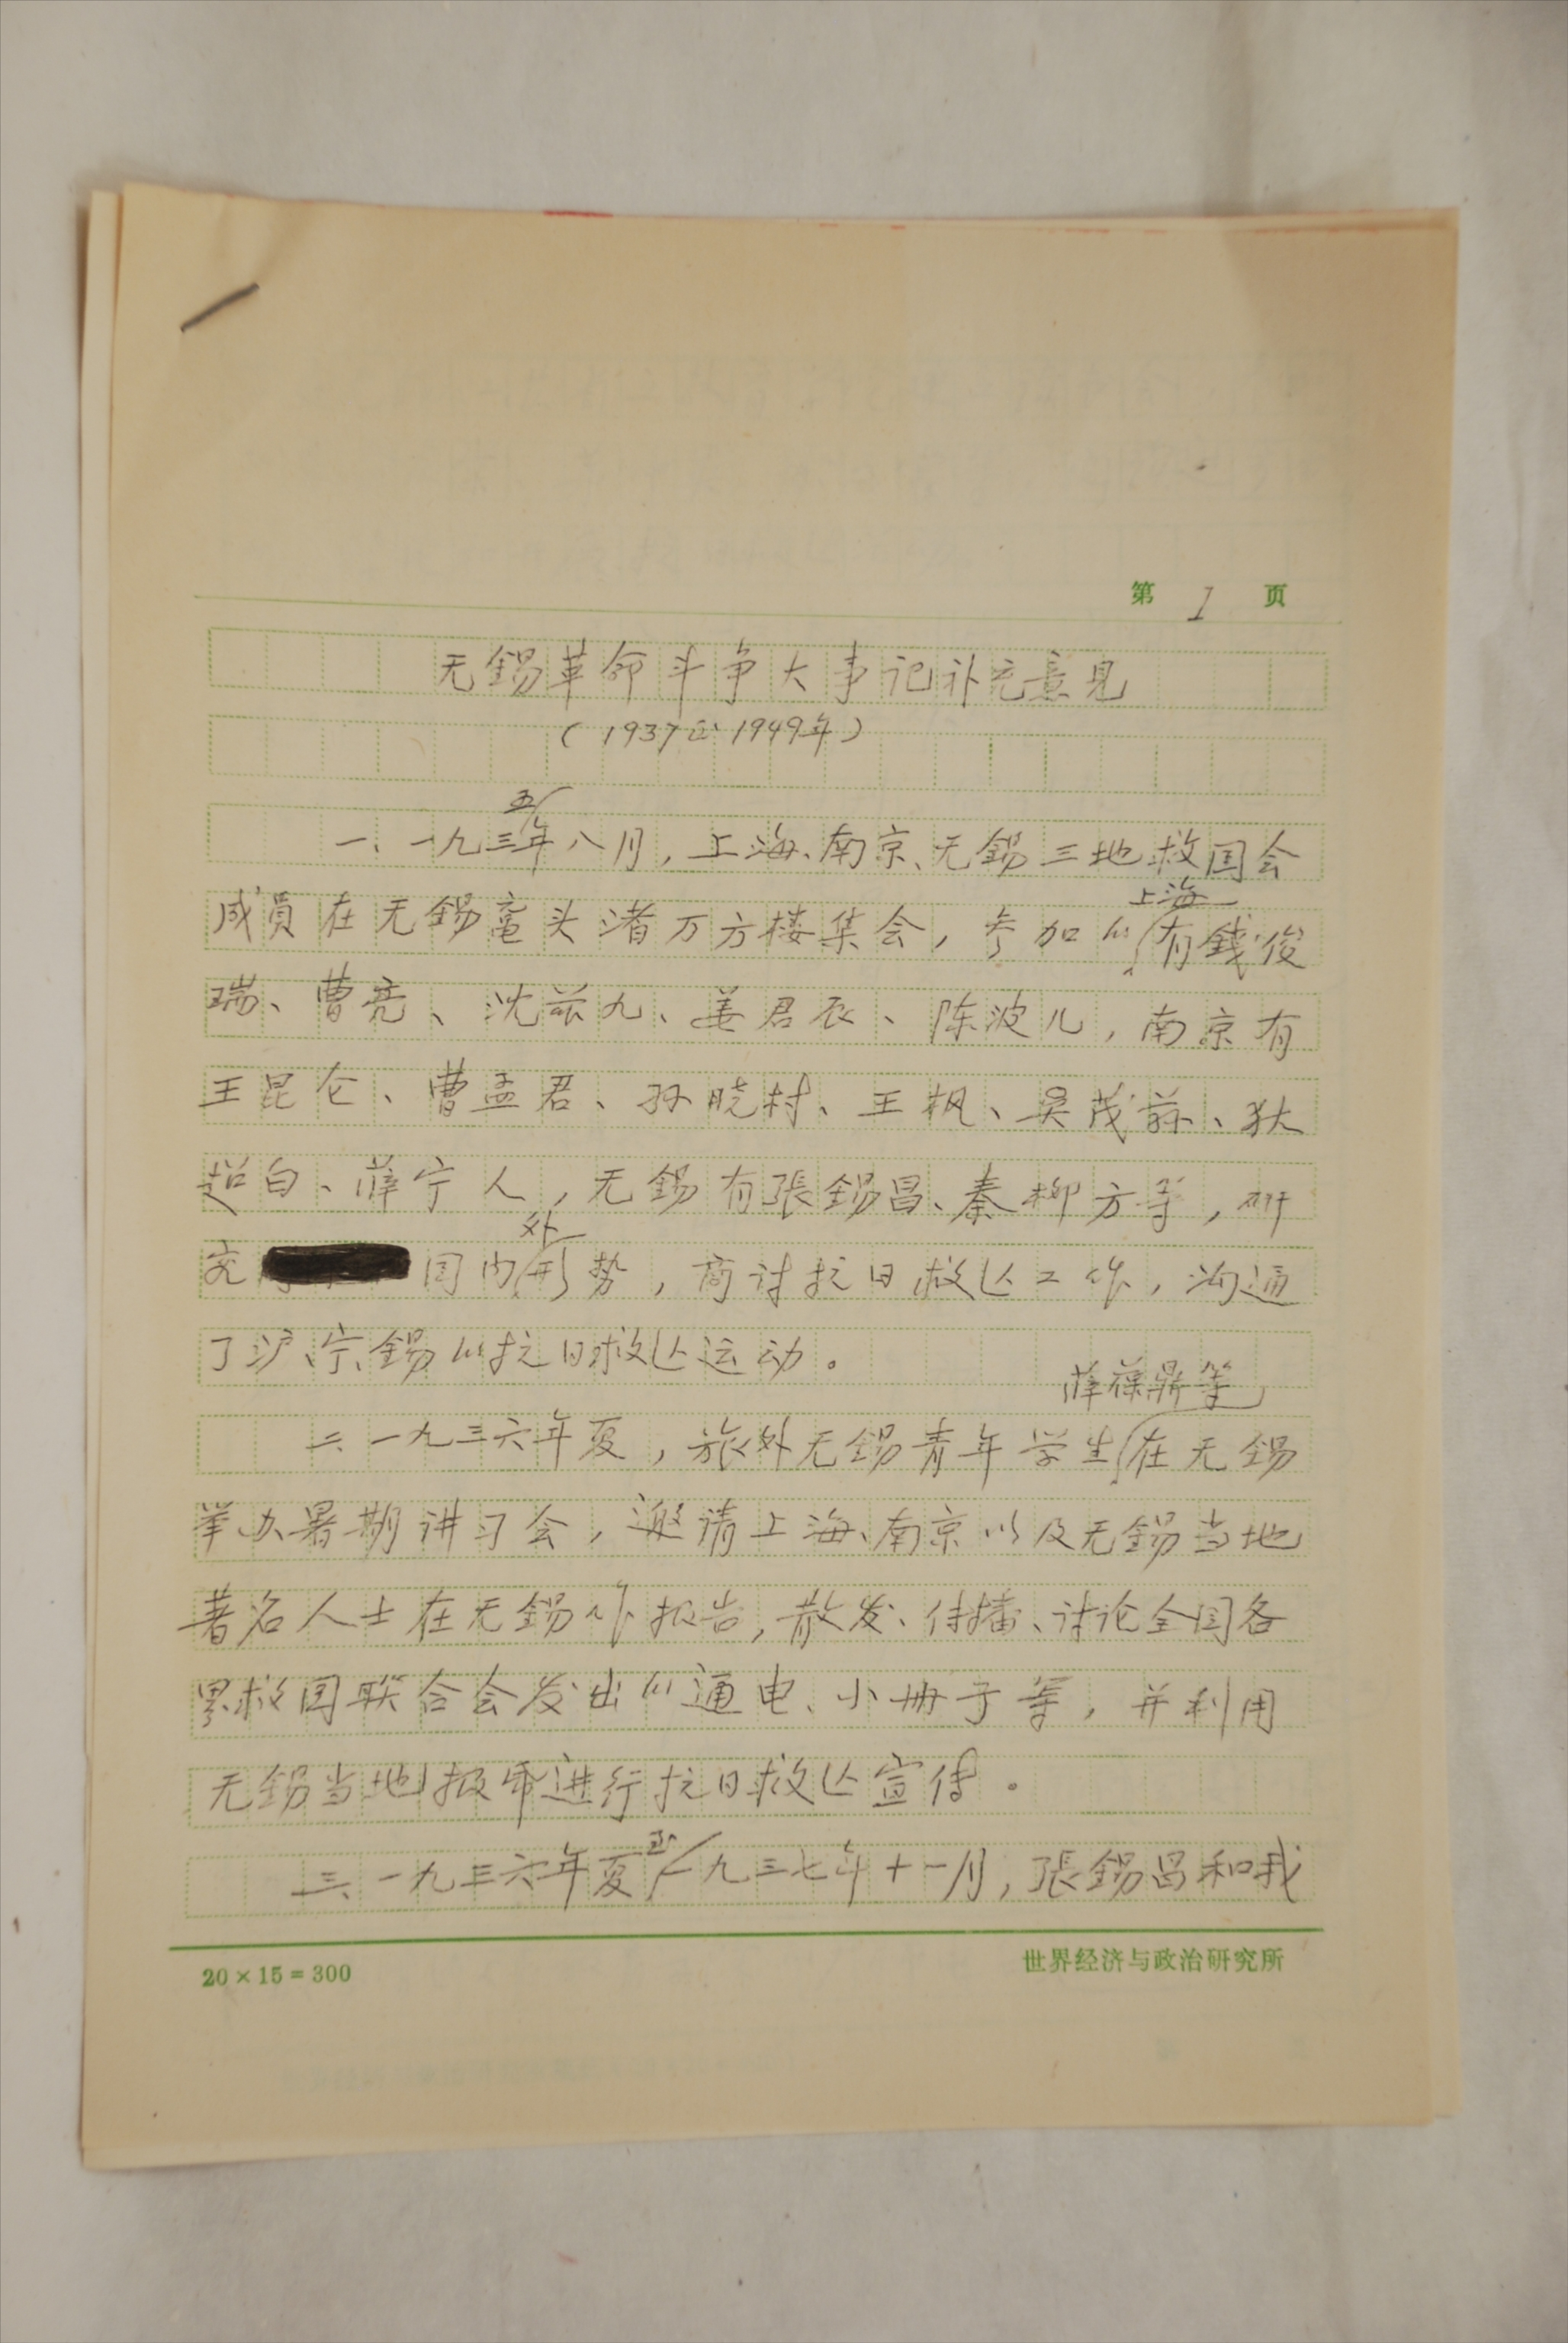 第 1 页
无锡革命斗争大事记补充意见
(1937至1949年)
一、一九三五年八月,上海、南京、无锡三地救国会
成員在无锡鼋头渚万方楼集会,参加的上海有錢俊
瑞、曹亮、沈兹九、姜君辰、陈波儿,南京有
王昆仑、曹孟君、孙晓村、王枫、吴茂荪、狄
超白、薛宁人,无锡有張錫昌、秦柳方等,研
究国内外形势,商讨抗日救亡工作,沟通
了沪、宁、锡的抗日救亡运动。
二、一九三六年夏,旅外无锡青年学生薛葆鼎等在无锡
举办暑期讲习会,邀请上海、南京以及无锡当地
著名人士在无锡作报告,散发、传播、讨论全国各
界救国联合会发出的通电、小册子等,并利用
无锡当地报纸进行抗日救亡宣传。
三、一九三六年夏至一九三七年十一月,張錫昌和我
20×15=300
世界经济与政治研究所